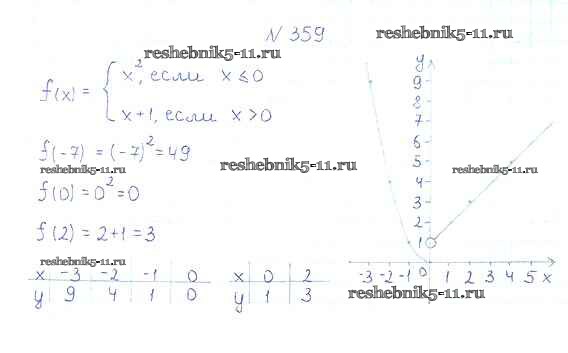 N 359
reshebnik5-11.ru
reshebnik5-11.ru
f(x) = { x², если x ≤ 0
x+1, если x > 0
f(-7) = (-7)² = 49
reshebnik5-11.ru
reshebnik5-11.ru
f(0) = 0² = 0
f(2) = 2+1 = 3
reshebnik5-11.ru
x -3 -2 -1 0
y 9 4 1 0
x 0 2
y 1 3
y
9
8
7
6
5
4
3
2
1
reshebnik5-11.ru
-3 -2 -1 0 1 2 3 4 5 x
reshebnik5-11.ru